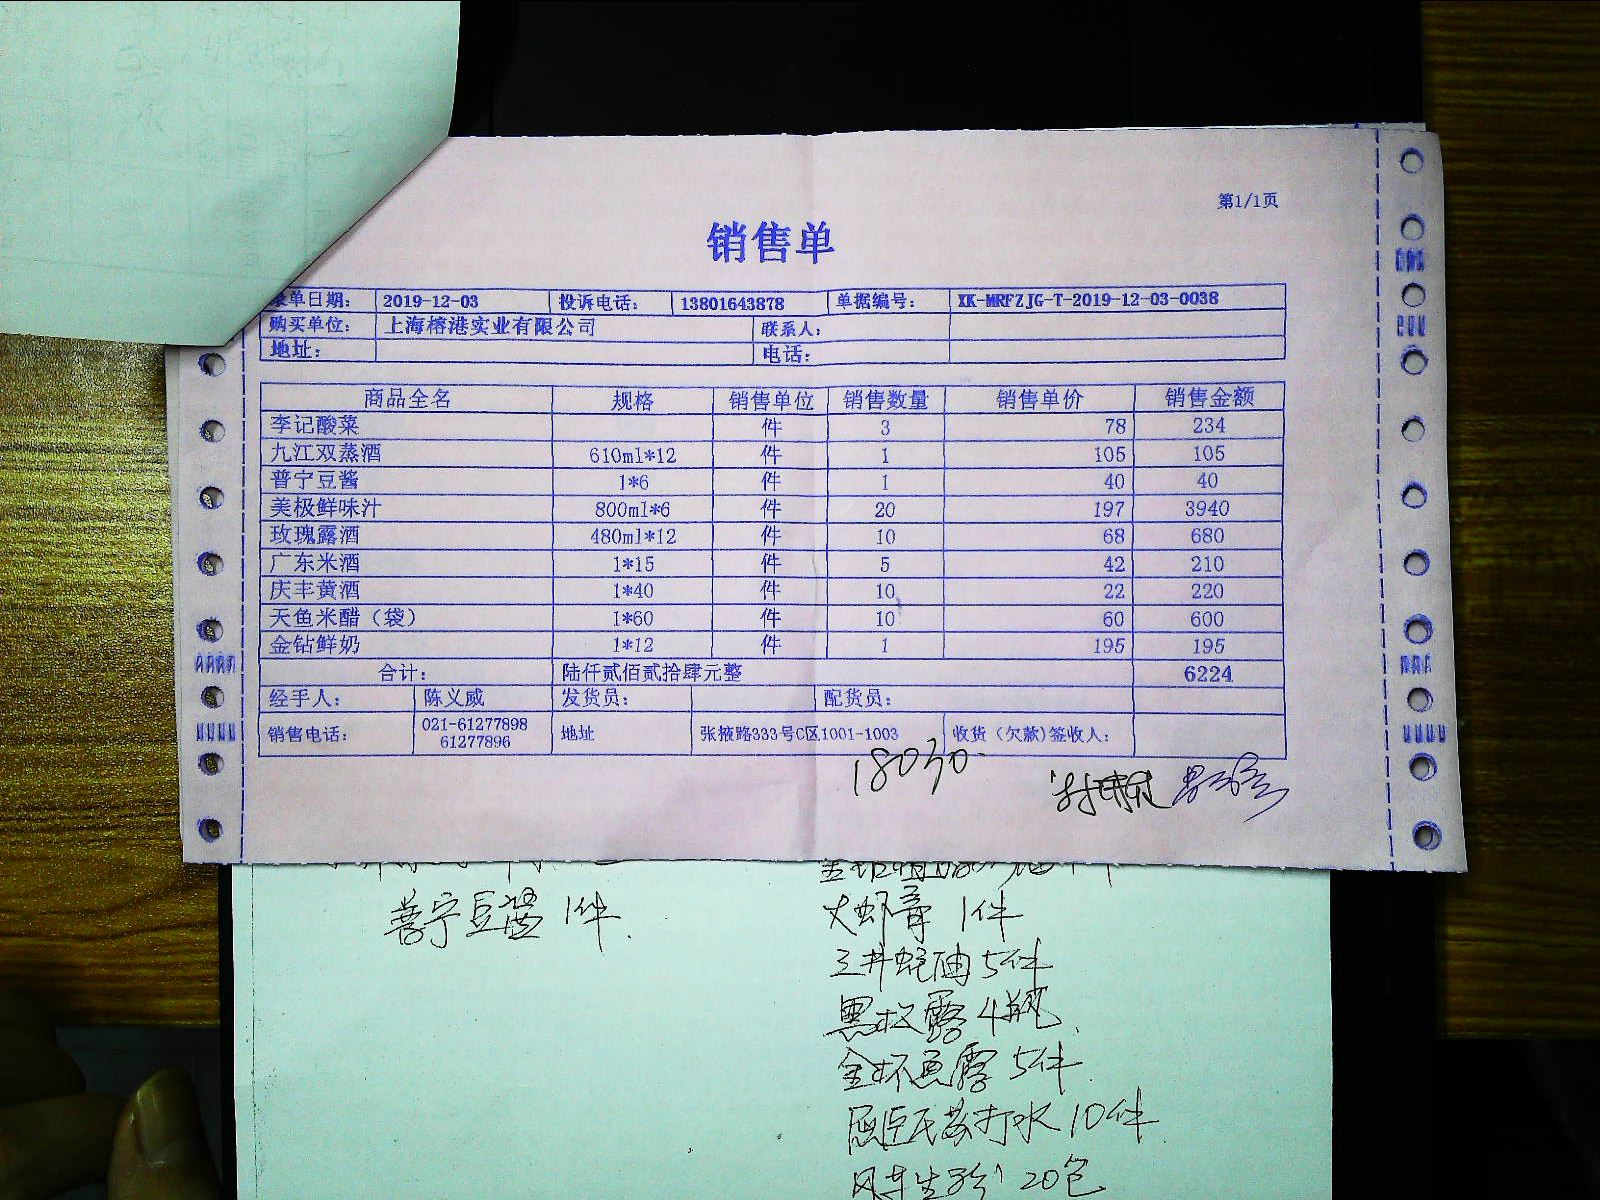 第1/1页
销售单
单日期： 2019-12-03 投诉电话： 13801643878 单据编号： XK-MRFZJG-T-2019-12-03-0038
购买单位： 上海榕港实业有限公司 联系人：
地址： 电话：
商品全名 规格 销售单位 销售数量 销售单价 销售金额
李记酸菜 件 3 78 234
九江双蒸酒 610ml*12 件 1 105 105
普宁豆酱 1*6 件 1 40 40
美极鲜味汁 800ml*6 件 20 197 3940
玫瑰露酒 480ml*12 件 10 68 680
广东米酒 1*15 件 5 42 210
庆丰黄酒 1*40 件 10 22 220
天鱼米醋（袋） 1*60 件 10 60 600
金钻鲜奶 1*12 件 1 195 195
合计： 陆仟贰佰贰拾肆元整 6224
经手人： 陈义威 发货员： 配货员：
销售电话： 021-61277898 61277896 地址 张掖路333号C区1001-1003 收货（欠款)签收人：
18030
普宁豆酱 1件.
大虾膏 1件
三井蚝油 5件
黑松露 4瓶.
金杯鱼露 5件.
屈臣氏苏打水 10件.
风车生粉 20包